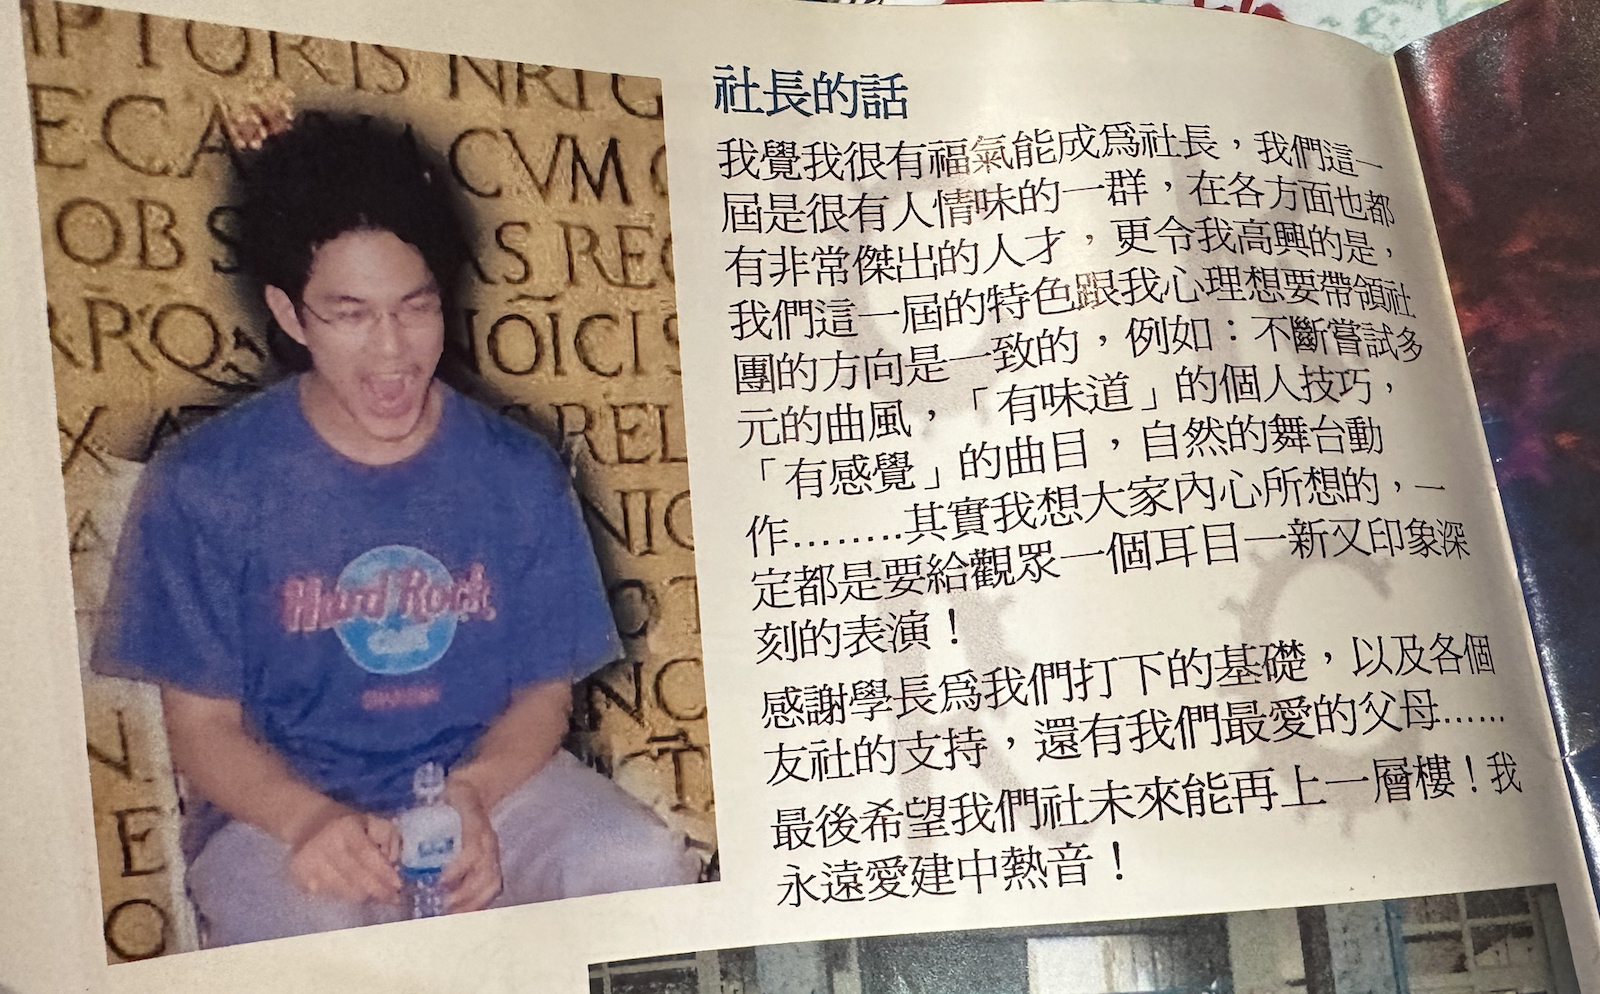 IPTORIS NRI G
ECA CVM C
OB S AS REC
RPO IOICIS
X AT S REL
A NIC
OT
NC
V
E
O
Hard Rock
CAFE
社長的話
我覺我很有福氣能成為社長,我們這一
屆是很有人情味的一群,在各方面也都
有非常傑出的人才,更令我高興的是,
我們這一屆的特色跟我心理想要帶領社
團的方向是一致的,例如:不斷嘗試多
元的曲風,「有味道」的個人技巧,
「有感覺」的曲目,自然的舞台動
作........其實我想大家內心所想的,一
定都是要給觀眾一個耳目一新又印象深
刻的表演!
感謝學長為我們打下的基礎,以及各個
友社的支持,還有我們最愛的父母......
最後希望我們社未來能再上一層樓!我
永遠愛建中熱音!